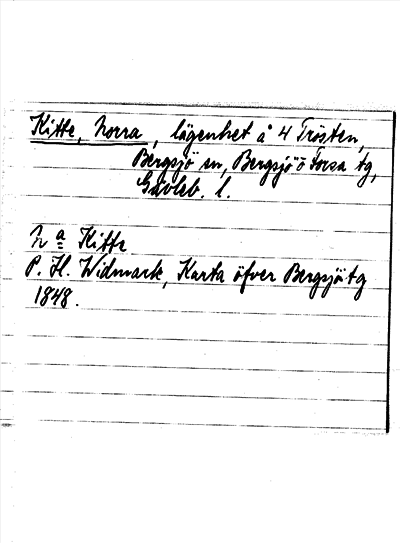 Kitte, Norra, lägenhet å 4 Trösten,
Bergsjö sn, Bergsjö ö Forsa tg,
Gävleb. l.
N a Kitte
P. H. Widmark, Karta öfver Bergsjö tg
1848.